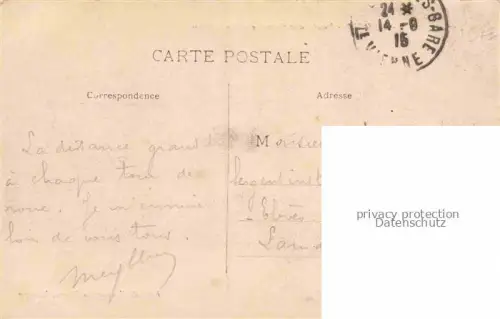 S-GARE
24 *
14-8
15
VIENNE
CARTE POSTALE
Correspondance
Adresse
La distance grandit
à chaque tour de
roue. Je m'ennuie
loin de vous tous.
M
Sergent
Élèves
privacy protection
Datenschutz